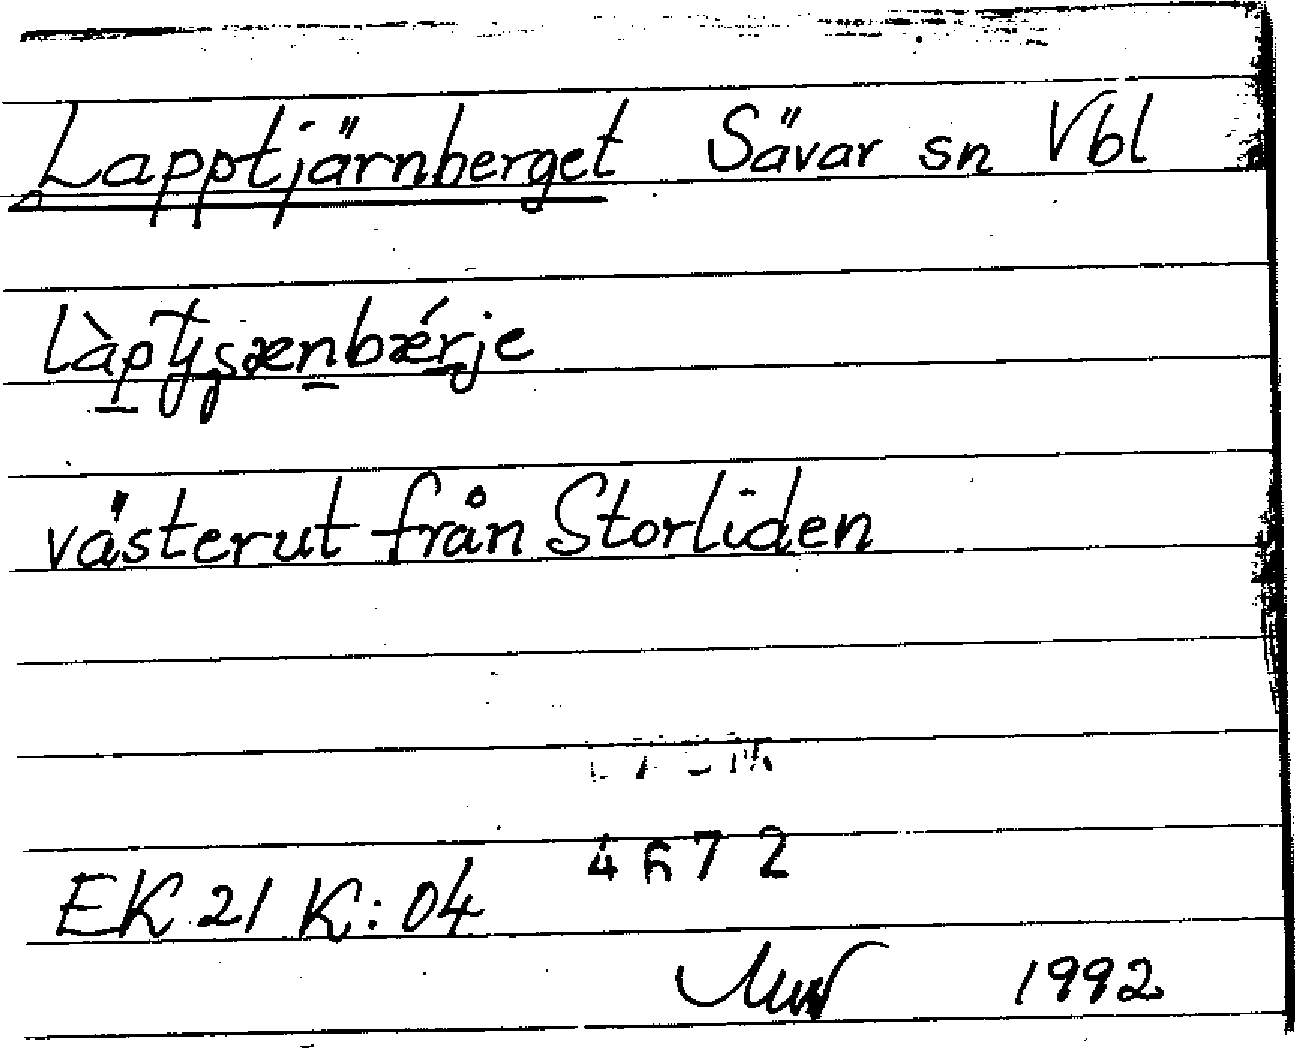 Lapptjärnberget Sävar sn Vbl
västerut från Storliden
4672
EK 21 K:04
1992